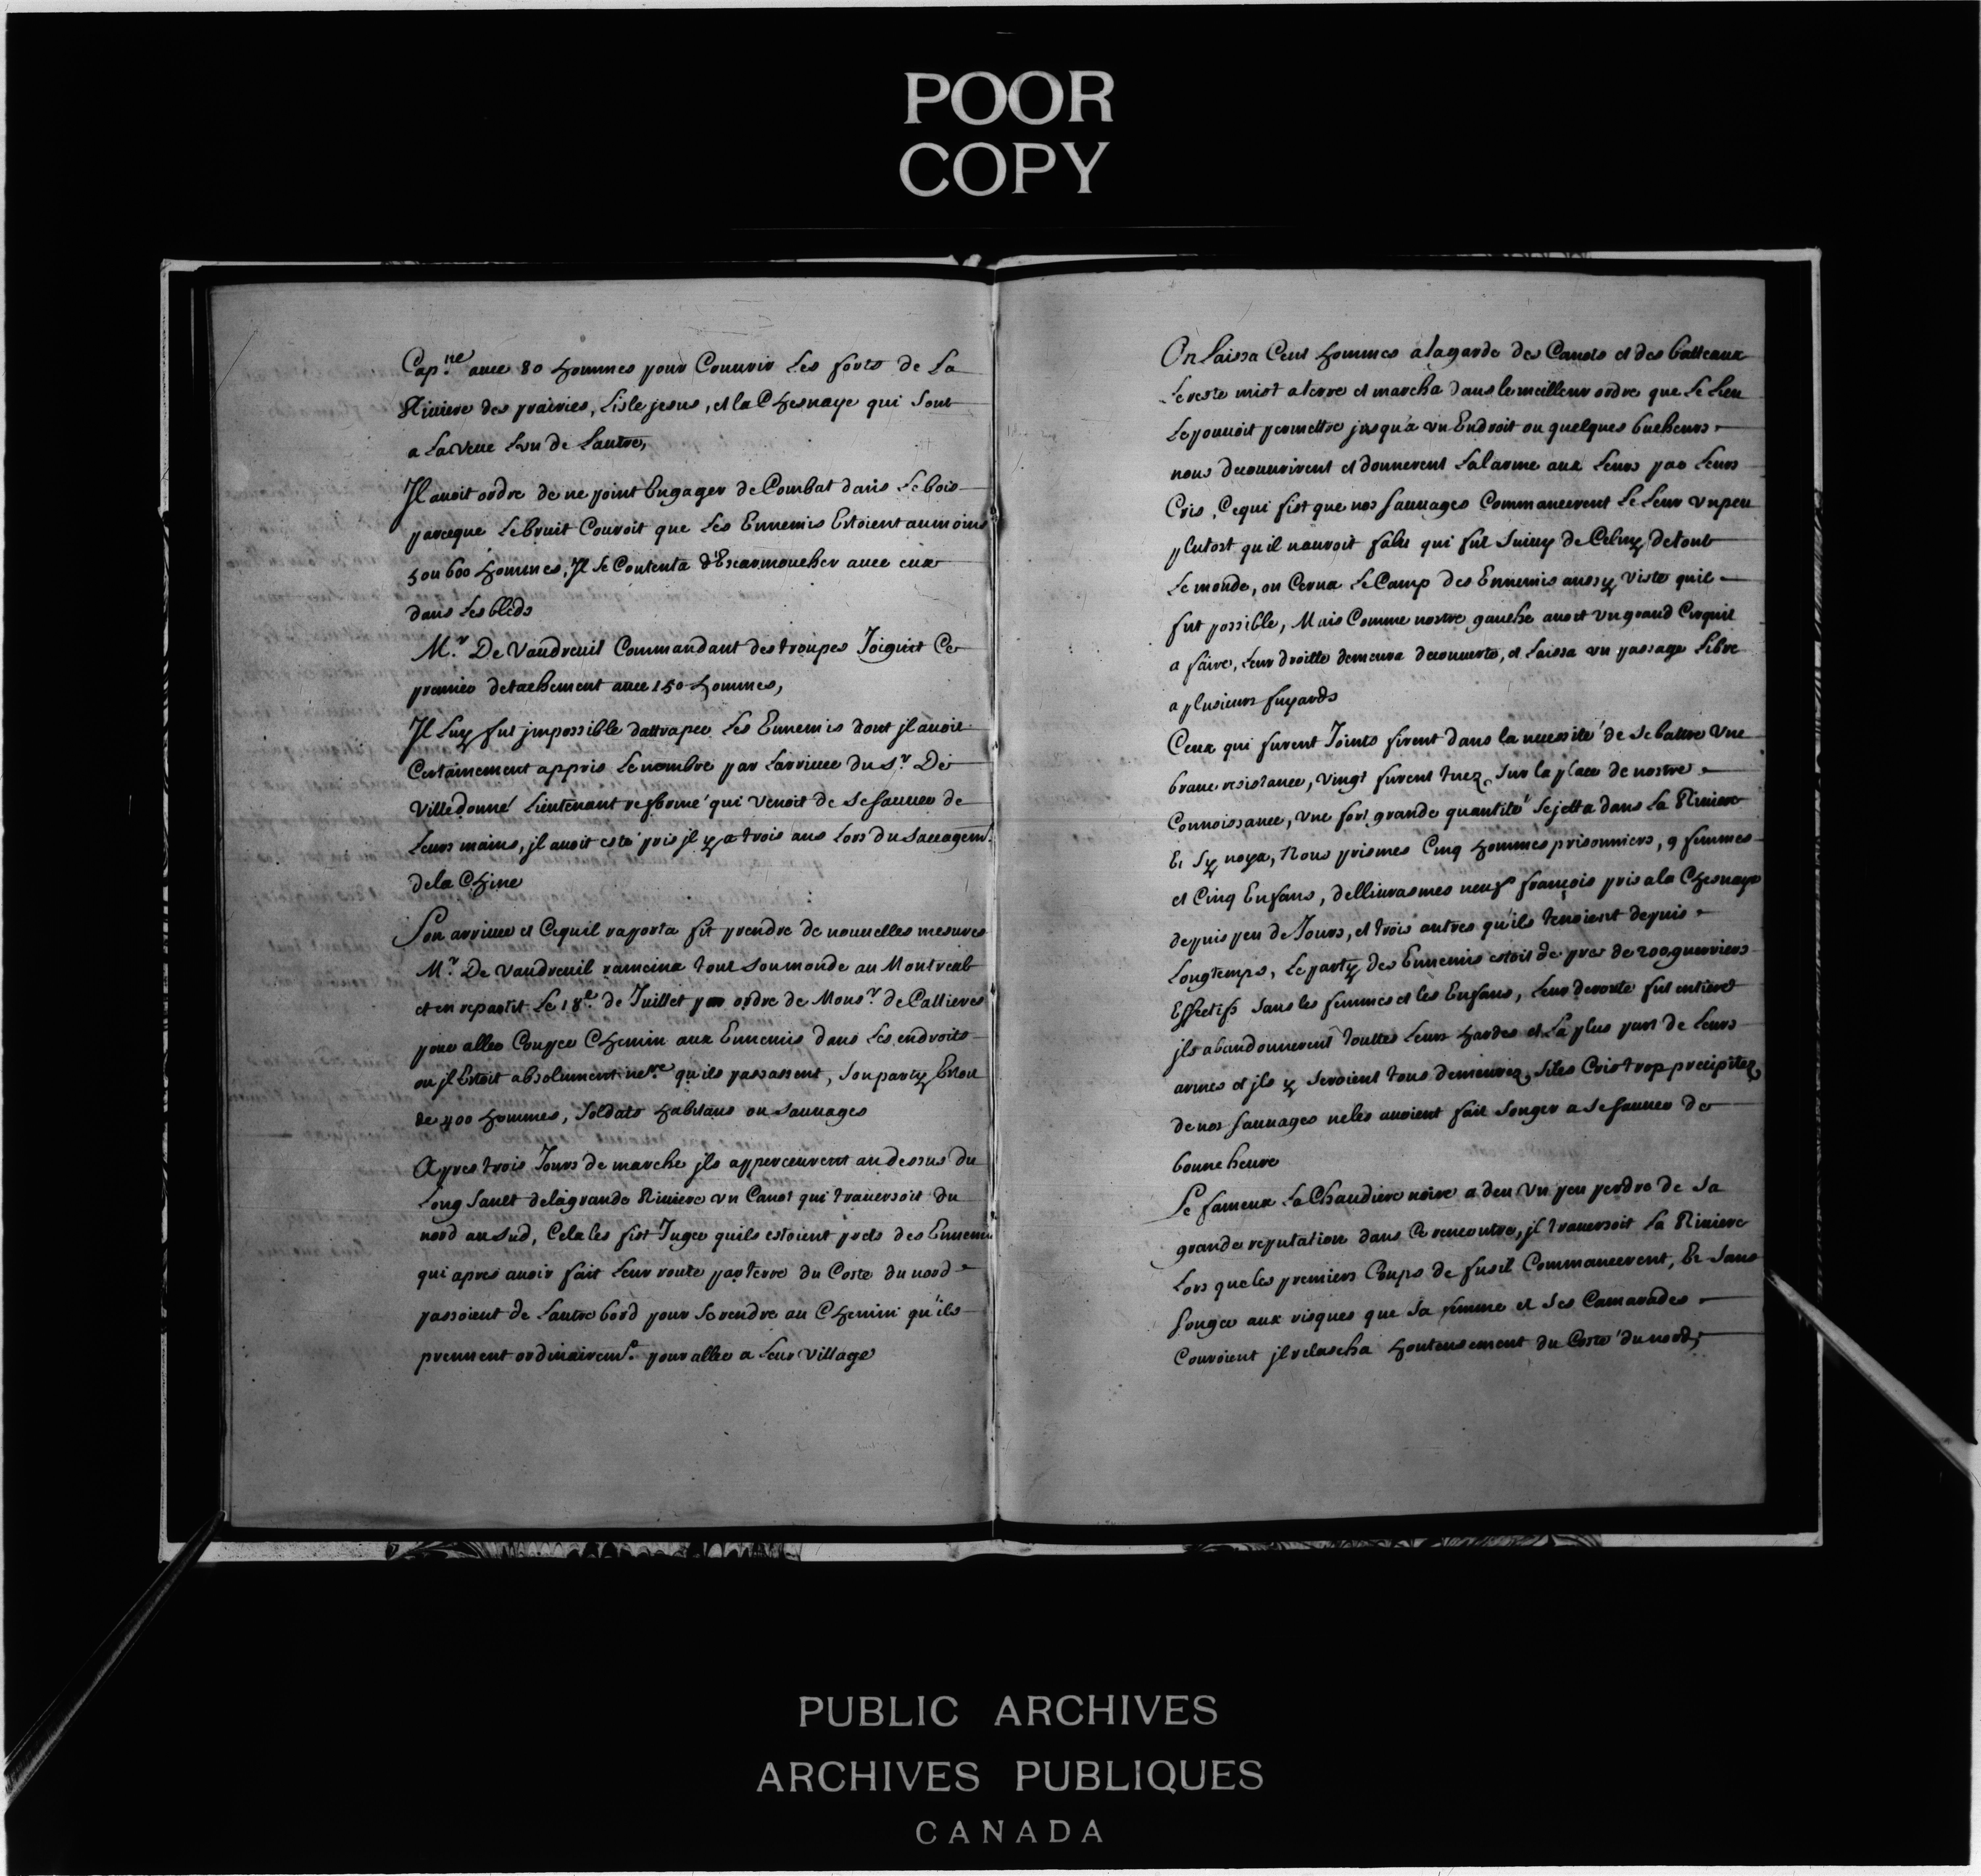 POOR
COPY
Cap.ne auec 80 hommes pour Couurir Les forts de La
Riuiere des prairies, Lisle jesus, et la Chesnaye qui sont
a La veue Lun de Lautre,
Il auoit ordre de ne point Engager de Combat dans Le bois
parceque Le bruit Couroit que Les Ennemis Estoient aumoins
5 ou 600 hommes, Il se Contenta d'Escarmoucher auec eux
dans Les bleds
M.r De Vaudreuil Commandant des troupes Joignit Ce
premier detachement auec 150 hommes,
Il Luy fut jmpossible dattraper Les Ennemis dont jl auoit
Certainement appris Le nombre par Larriuée du S.r De
Villedonné Lieutenant refformé qui Venoit de se sauuer de
Leurs mains, jl auoit esté pris jl y a trois ans Lors du saccagem.t
de la Chine
Son arriuée et Cequil raporta fit prendre de nouuelles mesures
M.r De Vaudreuil ramena tout son monde au Montreal
et en repartit Le 18.e de Juillet par ordre de Mons.r de Callieres
pour aller Couper Chemin aux Ennemis dans Les endroits
ou jl Estoit absolument ne.re qu'ils passassent, son party Estoit
de 400 hommes, soldats habitans ou sauuages
Apres trois Jours de marche jls apperceurent au dessus du
Long Sault de la grande Riuiere vn Canot qui trauersoit du
nord au sud, Cela les fist Juger quils estoient prets des Ennemis
qui apres auoir fait Leur route par terre du Coste du nord
passoient de Lautre bord pour se rendre au Chemin qu'ils
prennent ordinairem.t pour aller a Leur Village
On Laissa Cent hommes a la garde des Canots et des batteaux
Le reste mist a terre et marcha dans le meilleur ordre que Le Lieu
Le pouuoit permettre jusqu'a vn Endroit ou quelques bucheurs
nous decouurirent et donnerent Lalarme aux Leurs par Leurs
Cris, Cequi fist que nos sauuages Commancerent Le Leur vn peu
plutost qu'il nauroit falu qui fut suiuy de Celuy de tout
Le monde, on Cerna Le Camp des Ennemis aussy viste quil
fut possible, Mais Comme nostre gauche auoit vn grand Circuit
a faire, Leur droitte demeura decouuerte, et Laissa vn passage Libre
a plusieurs fuyards
Ceux qui furent Joints firent dans la necessité de se battre vne
braue resistance, vingt furent tuez sur la place de nostre
Connoissance, vne fort grande quantité se jetta dans La Riuiere
Et sy noya, Nous prismes Cinq hommes prisonniers, 9 femmes
et Cinq Enfans, dellivrasmes neuf françois pris a la Chesnaye
depuis peu de Jours, et trois autres qu'ils tenoient depuis
Longtemps, Le party des Ennemis estoit de pres de 200 guerriers
Effectifs sans les femmes et les Enfans, Leur deroute fut entiere
jls abandonnerent touttes Leurs hardes et La plus part de Leurs
armes et jls y seroient tous demeurez si les Cris trop precipitez
de nos sauuages ne les auoient fait songer a se sauuer de
bonne heure
Le fameux La Chaudiere noire a deu vn peu perdre de sa
grande reputation dans Ce rencontre, jl trauersoit La Riuiere
Lors que les premiers Coups de fusil Commancerent, Et sans
songer aux risques que sa femme et ses Camarades
Couroient jl relascha honteusement du Costé du nord,
PUBLIC ARCHIVES
ARCHIVES PUBLIQUES
CANADA